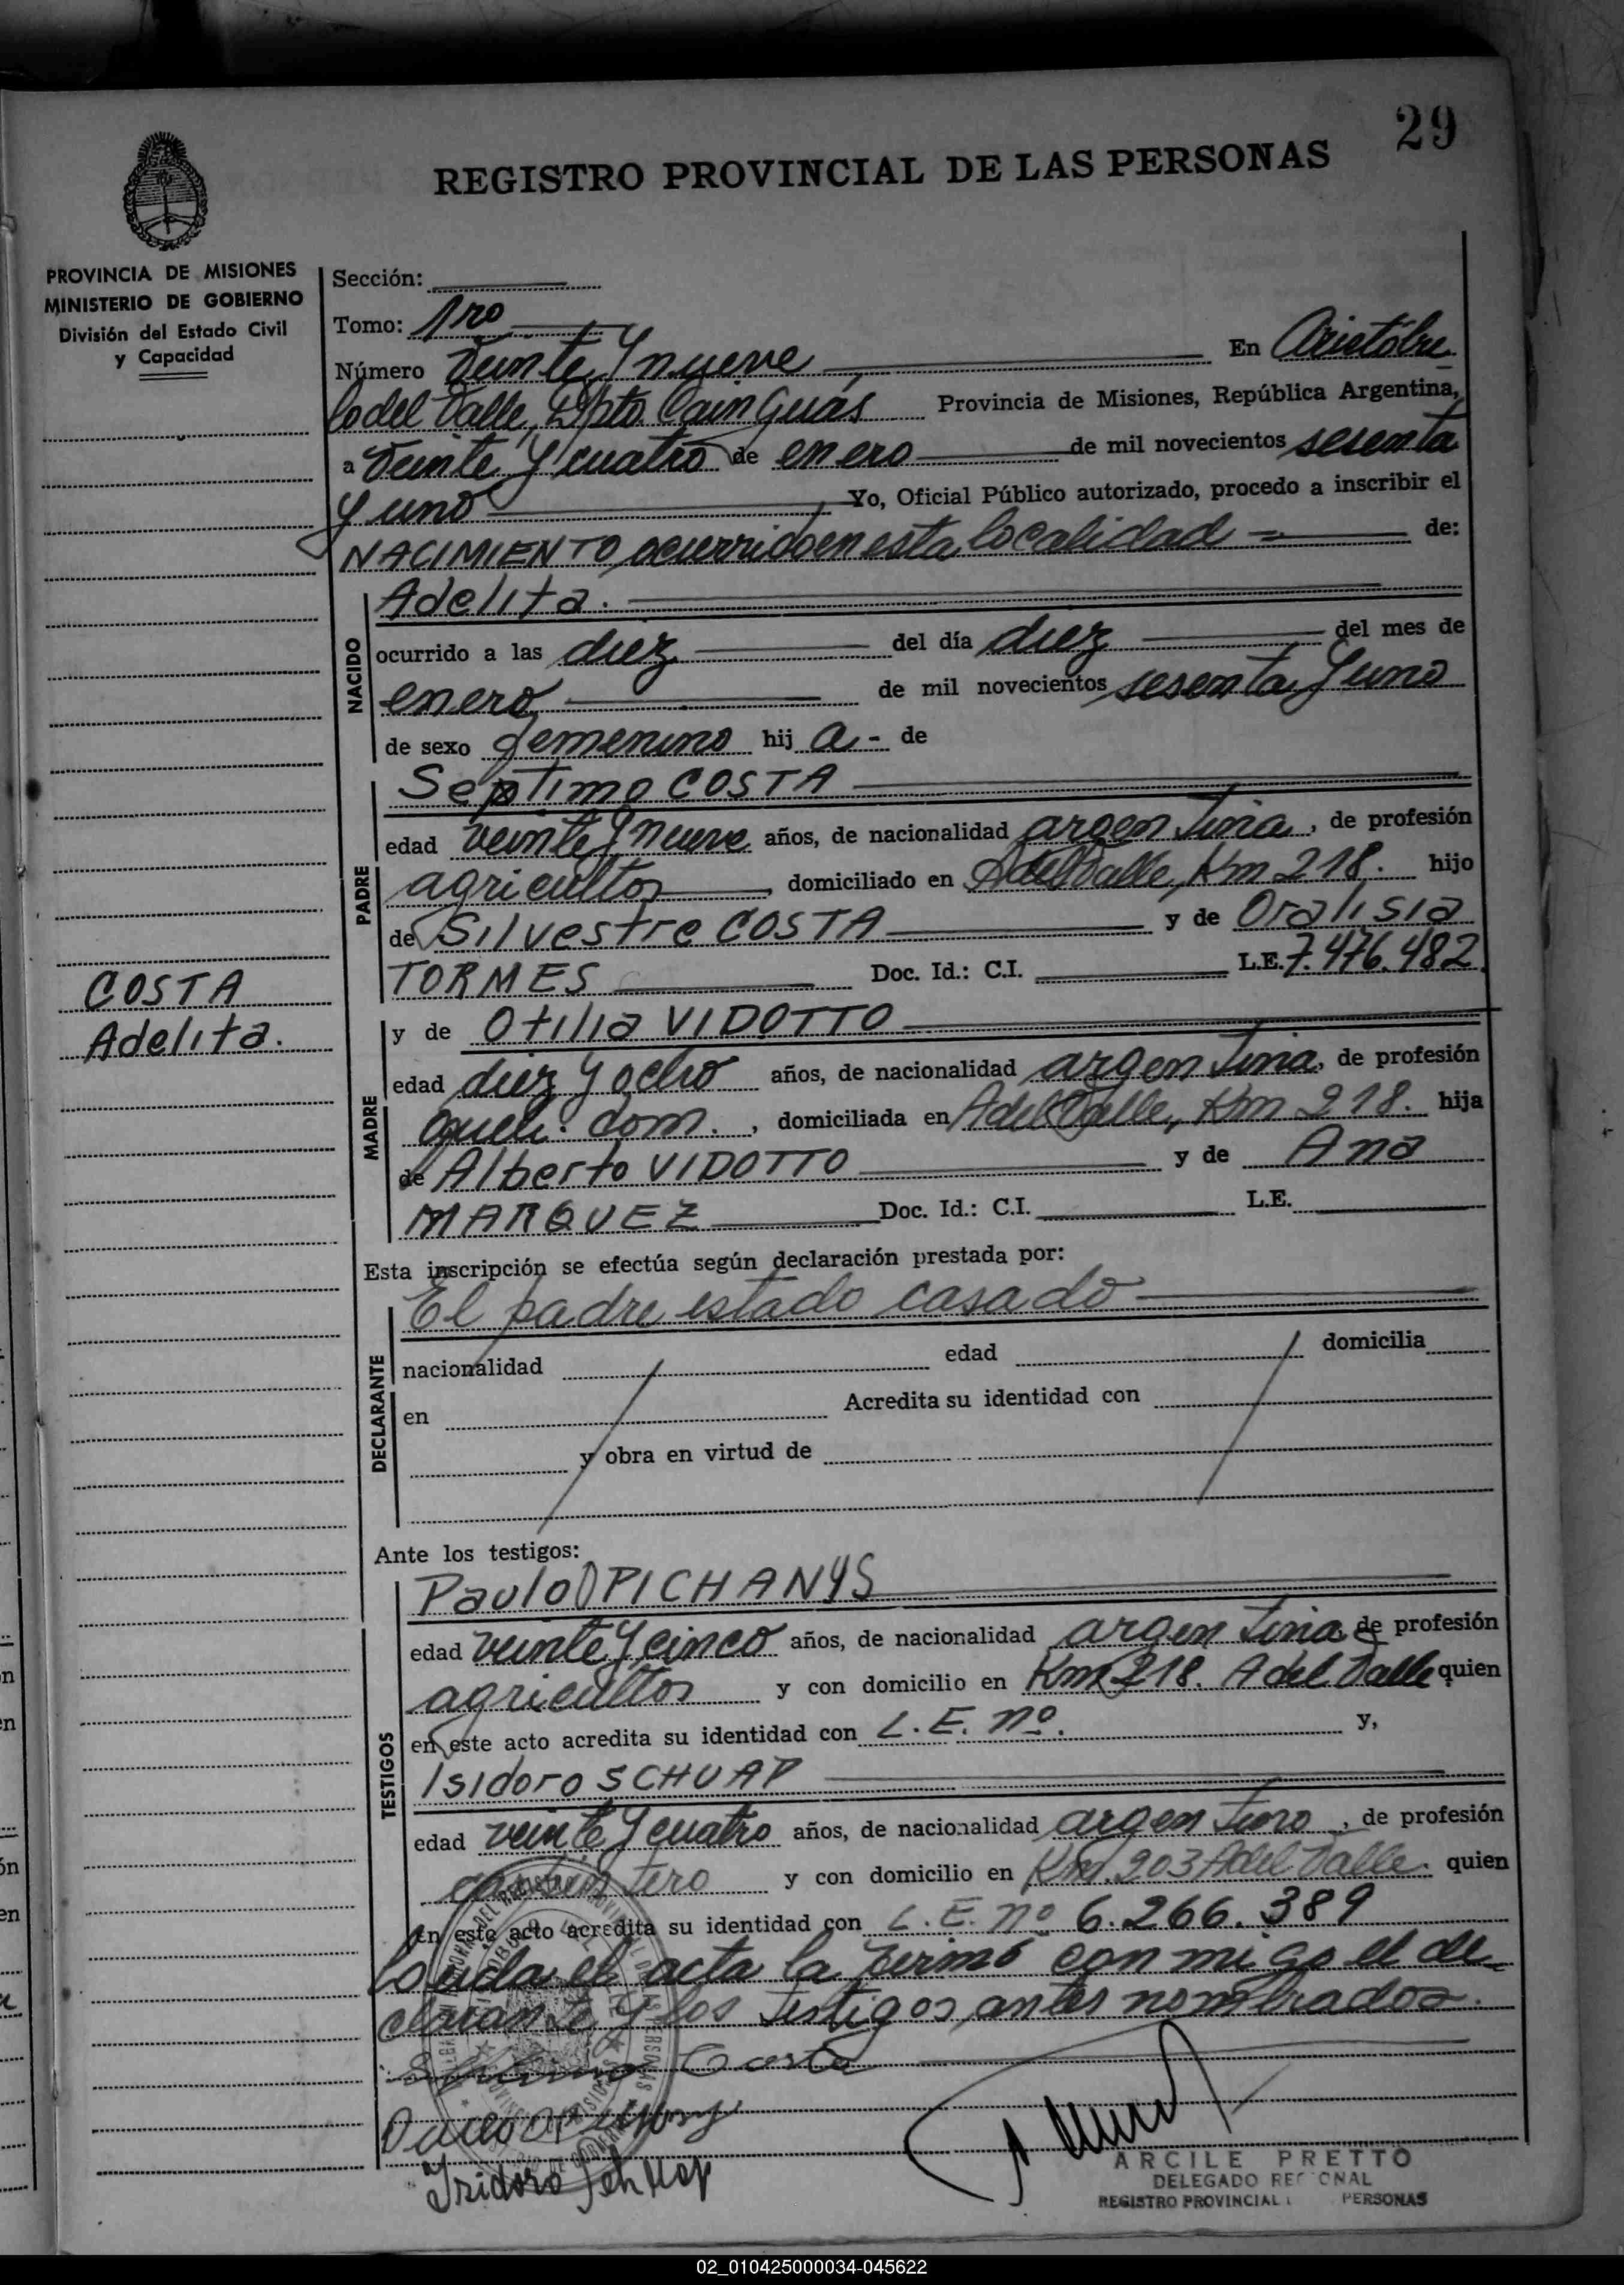 29
REGISTRO PROVINCIAL DE LAS PERSONAS
PROVINCIA DE MISIONES
MINISTERIO DE GOBIERNO
División del Estado Civil
y Capacidad
Sección:
Tomo: 1ro
Número Veinte y nueve En Aristóbu-
lo del Valle, Dpto. Cainguás Provincia de Misiones, República Argentina,
a Veinte y cuatro de enero de mil novecientos sesenta
y uno Yo, Oficial Público autorizado, procedo a inscribir el
NACIMIENTO ocurrido en esta localidad de:
NACIDO
Adelita.
ocurrido a las diez del día diez del mes de
enero de mil novecientos sesenta y uno
de sexo femenino hij a - de
PADRE
Septimo COSTA
edad veinte y nueve años, de nacionalidad argentina, de profesión
agricultor, domiciliado en A del Valle, Km 218. hijo
de Silvestre COSTA y de Oralisia
TORMES Doc. Id.: C.I. L.E. 7.476.482
COSTA
Adelita.
MADRE
y de Otilia VIDOTTO
edad diez y ocho años, de nacionalidad argentina, de profesión
queh. dom., domiciliada en A del Valle, Km 218. hija
de Alberto VIDOTTO y de Ana
MARQUEZ Doc. Id.: C.I. L.E.
Esta inscripción se efectúa según declaración prestada por:
DECLARANTE
El padre estado casado
nacionalidad edad domicilia
en Acredita su identidad con
y obra en virtud de
Ante los testigos:
TESTIGOS
Paulo OPICHANYS
edad veinte y cinco años, de nacionalidad argentina, de profesión
agricultor y con domicilio en Km 218. A del Valle quien
en este acto acredita su identidad con L.E. nº. y,
Isidoro SCHUAP
edad veinte y cuatro años, de nacionalidad argentino, de profesión
y con domicilio en Km. 203 A del Valle. quien
en este acto acredita su identidad con L.E. nº 6.266.389
Leida el acta la firmó con migo el de-
clarante y los testigos antes nombrados.
Septimo Costa
Isidoro Schuap
ARCILE PRETTO
DELEGADO REGIONAL
REGISTRO PROVINCIAL PERSONAS
02_010425000034-045622